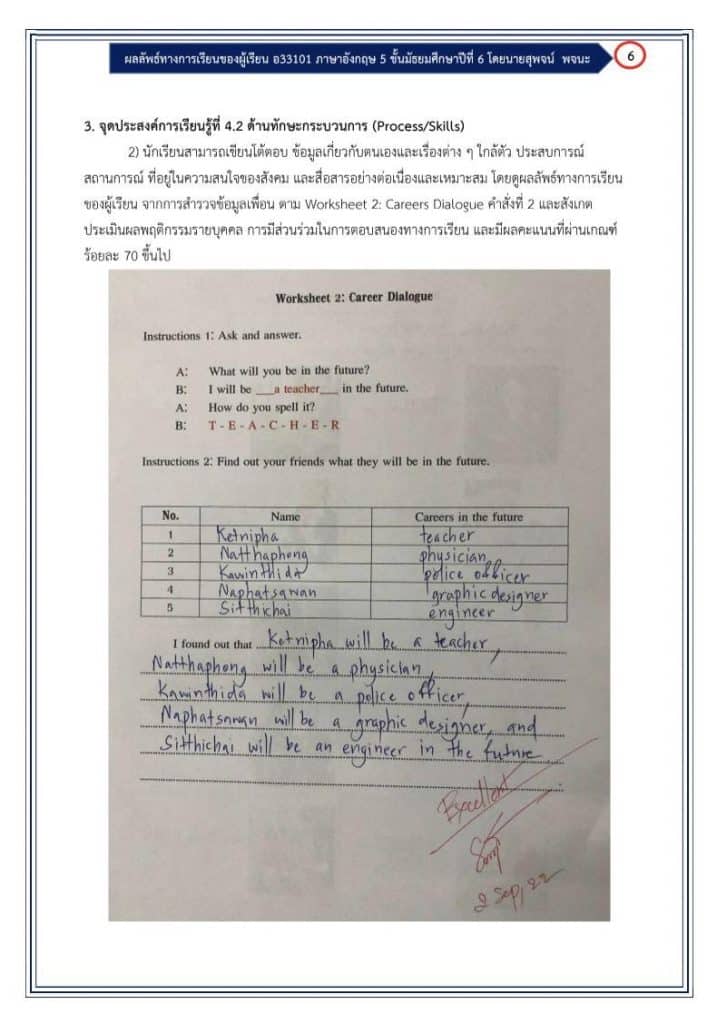 ผลลัพธ์ทางการเรียนของผู้เรียน อ33101 ภาษาอังกฤษ 5 ชั้นมัธยมศึกษาปีที่ 6 โดยนายสุพจน์ พจนะ 6
3. จุดประสงค์การเรียนรู้ที่ 4.2 ด้านทักษะกระบวนการ (Process/Skills)
2) นักเรียนสามารถเขียนโต้ตอบ ข้อมูลเกี่ยวกับตนเองและเรื่องต่าง ๆ ใกล้ตัว ประสบการณ์
สถานการณ์ ที่อยู่ในความสนใจของสังคม และสื่อสารอย่างต่อเนื่องและเหมาะสม โดยดูผลลัพธ์ทางการเรียน
ของผู้เรียน จากการสำรวจข้อมูลเพื่อน ตาม Worksheet 2: Careers Dialogue คำสั่งที่ 2 และสังเกต
ประเมินผลพฤติกรรมรายบุคคล การมีส่วนร่วมในการตอบสนองทางการเรียน และมีผลคะแนนที่ผ่านเกณฑ์
ร้อยละ 70 ขึ้นไป
Worksheet 2: Career Dialogue
Instructions 1: Ask and answer.
A: What will you be in the future?
B: I will be ___a teacher___ in the future.
A: How do you spell it?
B: T - E - A - C - H - E - R
Instructions 2: Find out your friends what they will be in the future.
No. Name Careers in the future
1 Ketnipha teacher
2 Natthaphong physician
3 Kawinthida police officer
4 Naphatsawan graphic designer
5 Sitthichai engineer
I found out that Ketnipha will be a teacher,
Natthaphong will be a physician,
Kawinthida will be a police officer,
Naphatsawan will be a graphic designer, and
Sitthichai will be an engineer in the future
Excellent
2 Sep, 22